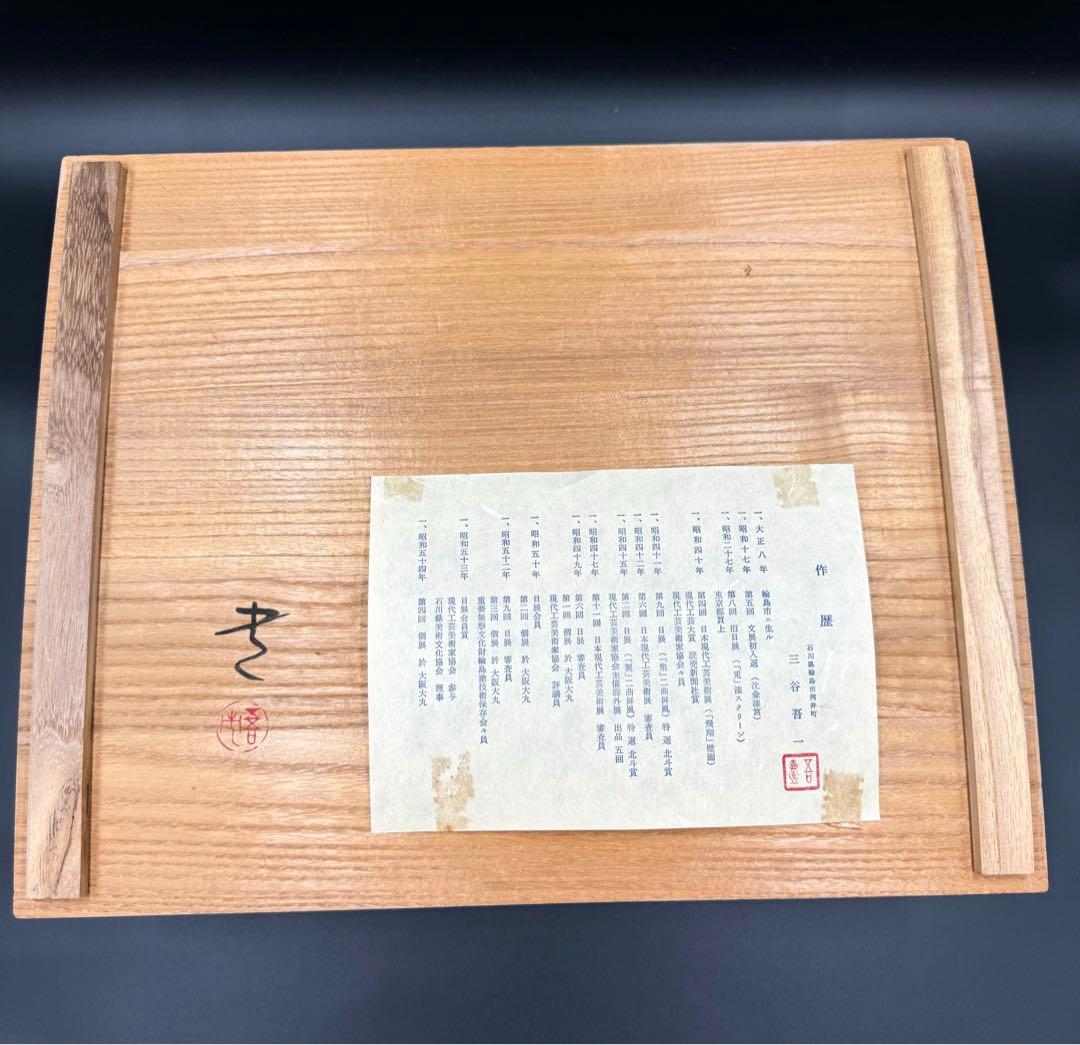 作歴
石川県輪島市河井町
三谷吾一
一、大正八年 輪島市ニ生ル
一、昭和十七年 第五回 文展初入選(沈金漆筥)
一、昭和二十七年 第八回 旧日展(「兎」漆スクリーン)
東京都買上
一、昭和四十年 第四回 日本現代工芸美術展(「飛翔」壁面)
現代工芸大賞 読売新聞社賞
現代工芸美術家協会々員
一、昭和四十一年 第九回 日展(「集」二曲屏風)特選 北斗賞
一、昭和四十二年 第六回 日本現代工芸美術展 審査員
一、昭和四十五年 第二回 日展(「翼」二曲屏風)特選 北斗賞
現代工芸美術家協会主催海外展 出品 五回
一、昭和四十七年 第十一回 日本現代工芸美術展 審査員
一、昭和四十九年 第六回 日展 審査員
第一回 個展 於 大阪大丸
日展会員
現代工芸美術家協会 評議員
一、昭和五十年 第二回 個展 於 大阪大丸
一、昭和五十二年 第九回 日展 審査員
第三回 個展 於 大阪大丸
重要無形文化財輪島塗技術保存会々員
一、昭和五十三年 日展会員賞
現代工芸美術家協会 参与
石川県美術文化協会 理事
一、昭和五十四年 第四回 個展 於 大阪大丸